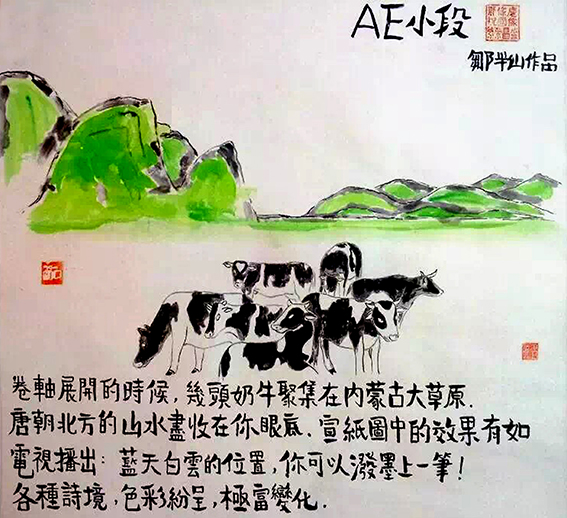 AE小段
鄒半山作品
卷軸展開的時候,幾頭奶牛聚集在内蒙古大草原.
唐朝北方的山水盡收在你眼底.宣紙圖中的效果有如
電視播出:藍天白雲的位置,你可以潑墨上一筆!
各種詩境,色彩紛呈,極富變化.